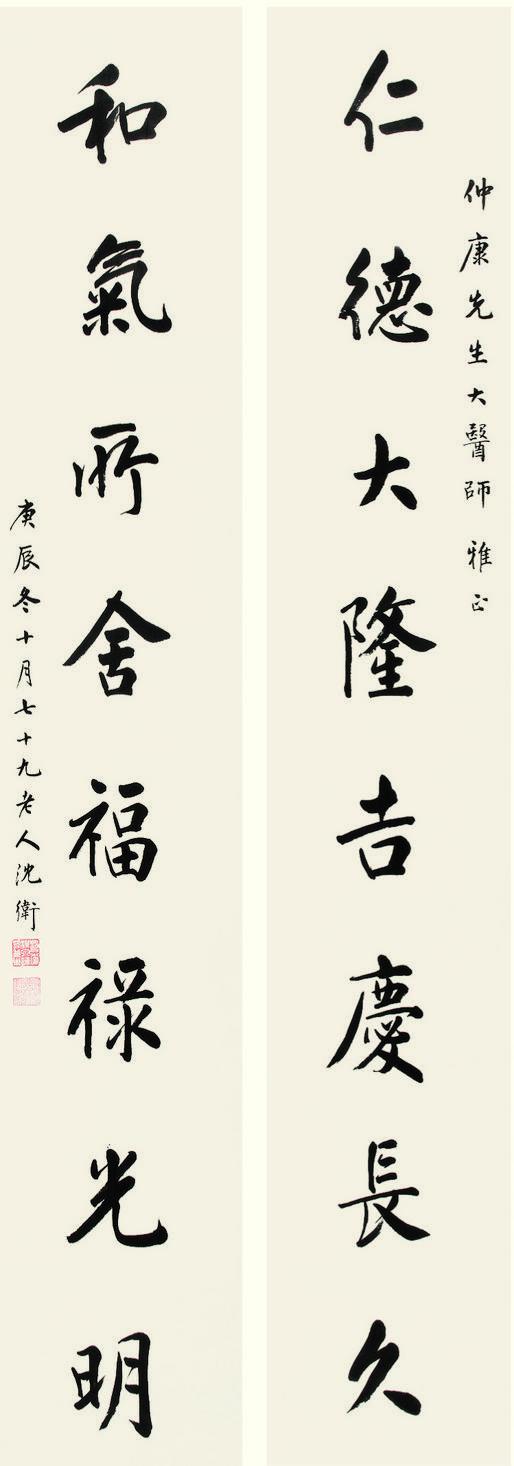 仲康先生大醫師 雅正
仁德大隆吉慶長久
和氣所舍福祿光明
庚辰冬十月七十九老人沈衛